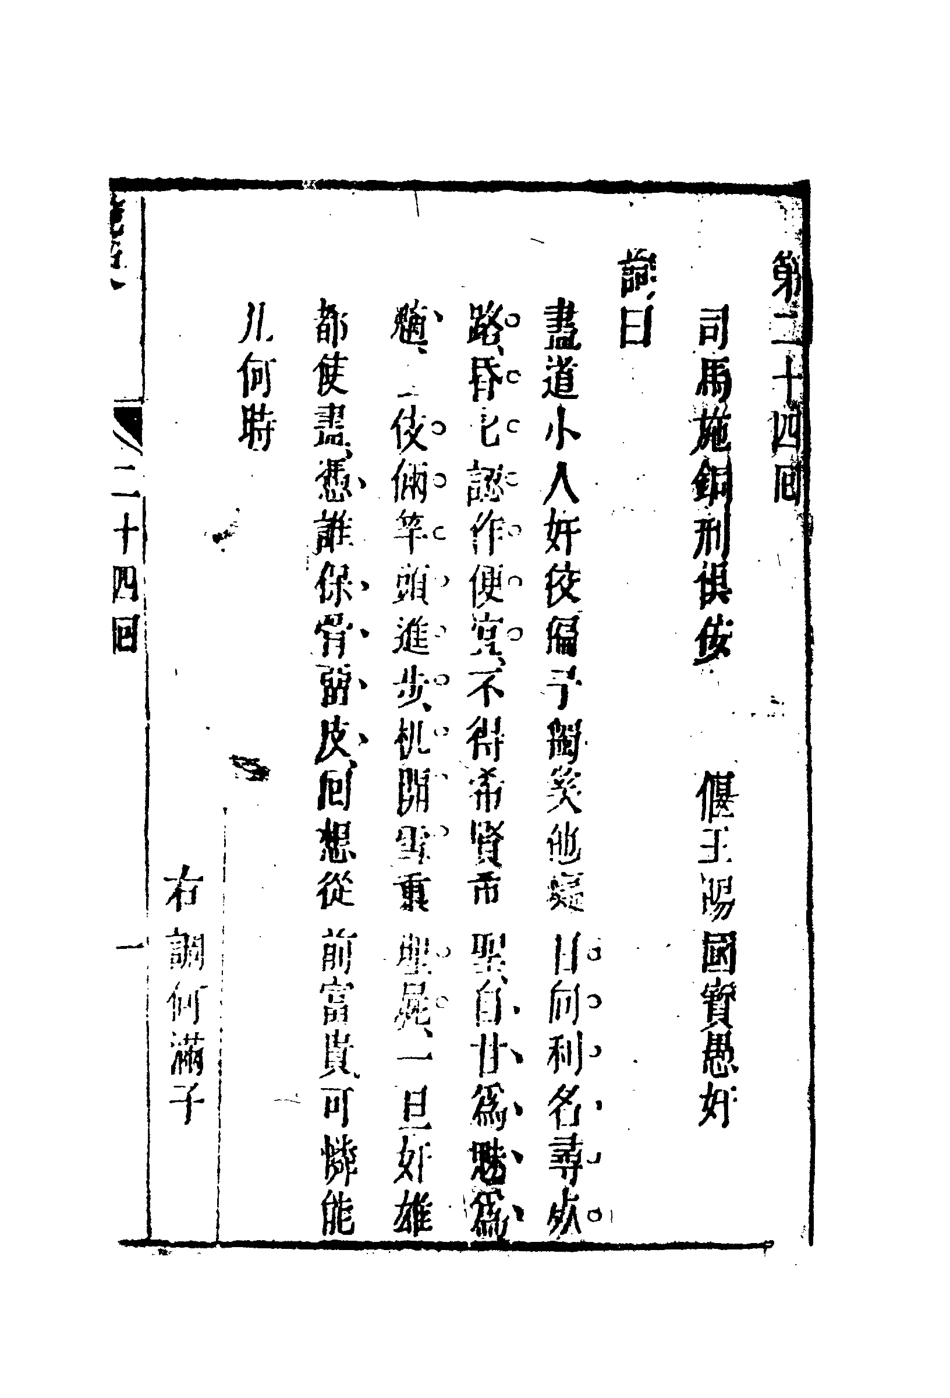 第二十四回
司馬施銅刑懼佞 偃王陽國寶愚奸
詞曰
盡道小人奸狡偏予獨笑他癡日向利名尋死
路昏七認作便宜不得希賢希聖自甘爲魅爲
魎 一伎倆竿頭進步机開雪重埋屍一旦奸雄
都使盡憑誰保骨留皮回想從前富貴可憐能
几何時
右調何滿子
二十四回
一